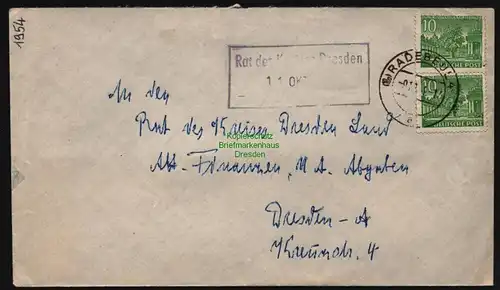 1954
10
DEUTSCHE POST
RADEBEUL
10
DEUTSCHE POST
Rat des Kreises Dresden
11. OKT
An den
Rat des Kreises Dresden Land
Kopierschutz
Briefmarkenhaus
Dresden
Abt. Finanzen, U. A. Abgaben
Dresden-A
4